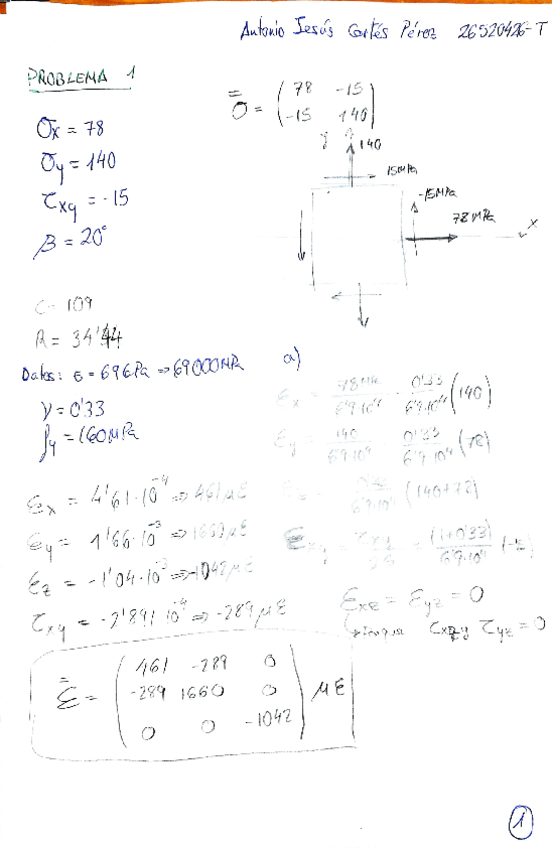 Antonio Jesús Cortés Pérez 26520426-T
PROBLEMA 1
σ̿ = ( 78 -15
-15 140 )
σx = 78
σy = 140
τxy = -15
β = 20°
y 140
15MPa
-15MPa
78 MPa
x
C = 109
R = 34'44
Datos: E = 69GPa => 69000MPa
ν = 0'33
fy = 160MPa
a)
εx = 78MPa/6'9·10⁴ - 0'33/6'9·10⁴ (140)
εy = 140/6'9·10⁴ - 0'33/6'9·10⁴ (78)
6'9·10⁴ (140+78)
εxy = τxy/2G = (1+0'33)/6'9·10⁴ (-15)
εx = 4'61·10⁻⁴ => 461 με
εy = 1'66·10⁻³ => με
εz = -1'04·10⁻³ => -1042 με
τxy = -2'891·10⁻⁴ => -289 με
εxz = εyz = 0
τyz = 0
ε̿ = ( 461 -289 0
-289 1660 0
0 0 -1042 ) με
1